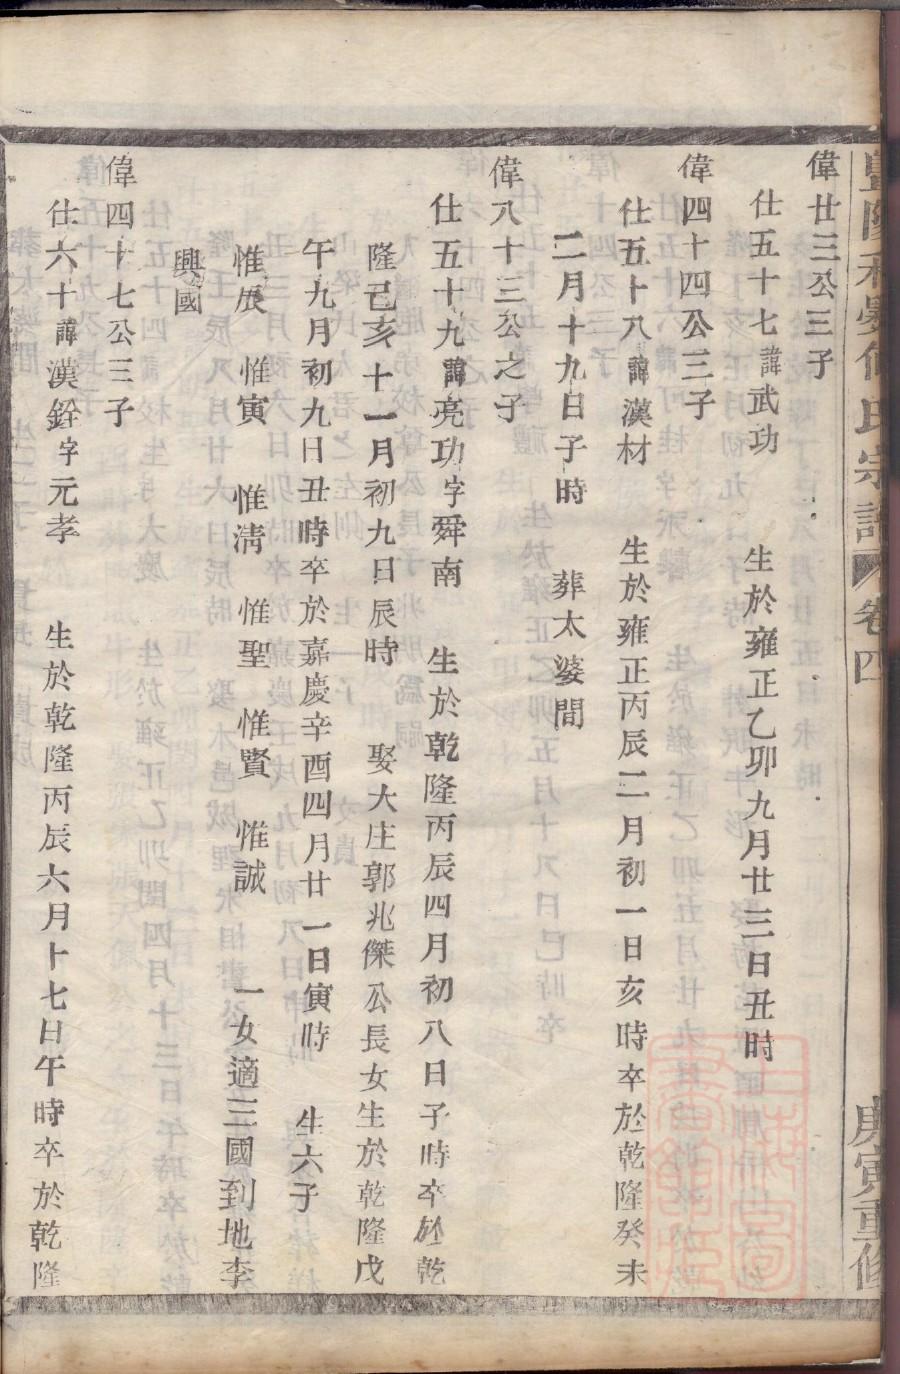 偉廿三公三子
仕五十七諱武功　生於雍正乙卯九月廿三日丑時
偉四十四公三子
仕五十八諱漢材　生於雍正丙辰二月初一日亥時卒於乾隆癸未
二月十九日子時　葬太婆間
偉八十三公之子
仕五十九諱亮功字舜南　生於乾隆丙辰四月初八日子時卒於乾
隆己亥十一月初九日辰時　娶大庄郭兆傑公長女生於乾隆戊
午九月初九日丑時卒於嘉慶辛酉四月廿一日寅時　生六子
惟展　惟寅　惟淸　惟聖　惟賢　惟誠　一女適三國到地李
興國
偉四十七公三子
仕六十諱漢銓字元孝　生於乾隆丙辰六月十七日午時卒於乾隆
氏宗譜　卷四　庚寅重修